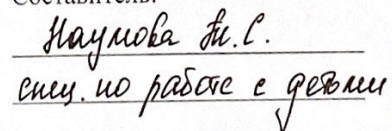 Составитель:
Наумова Т.С.
спец. по работе с детьми